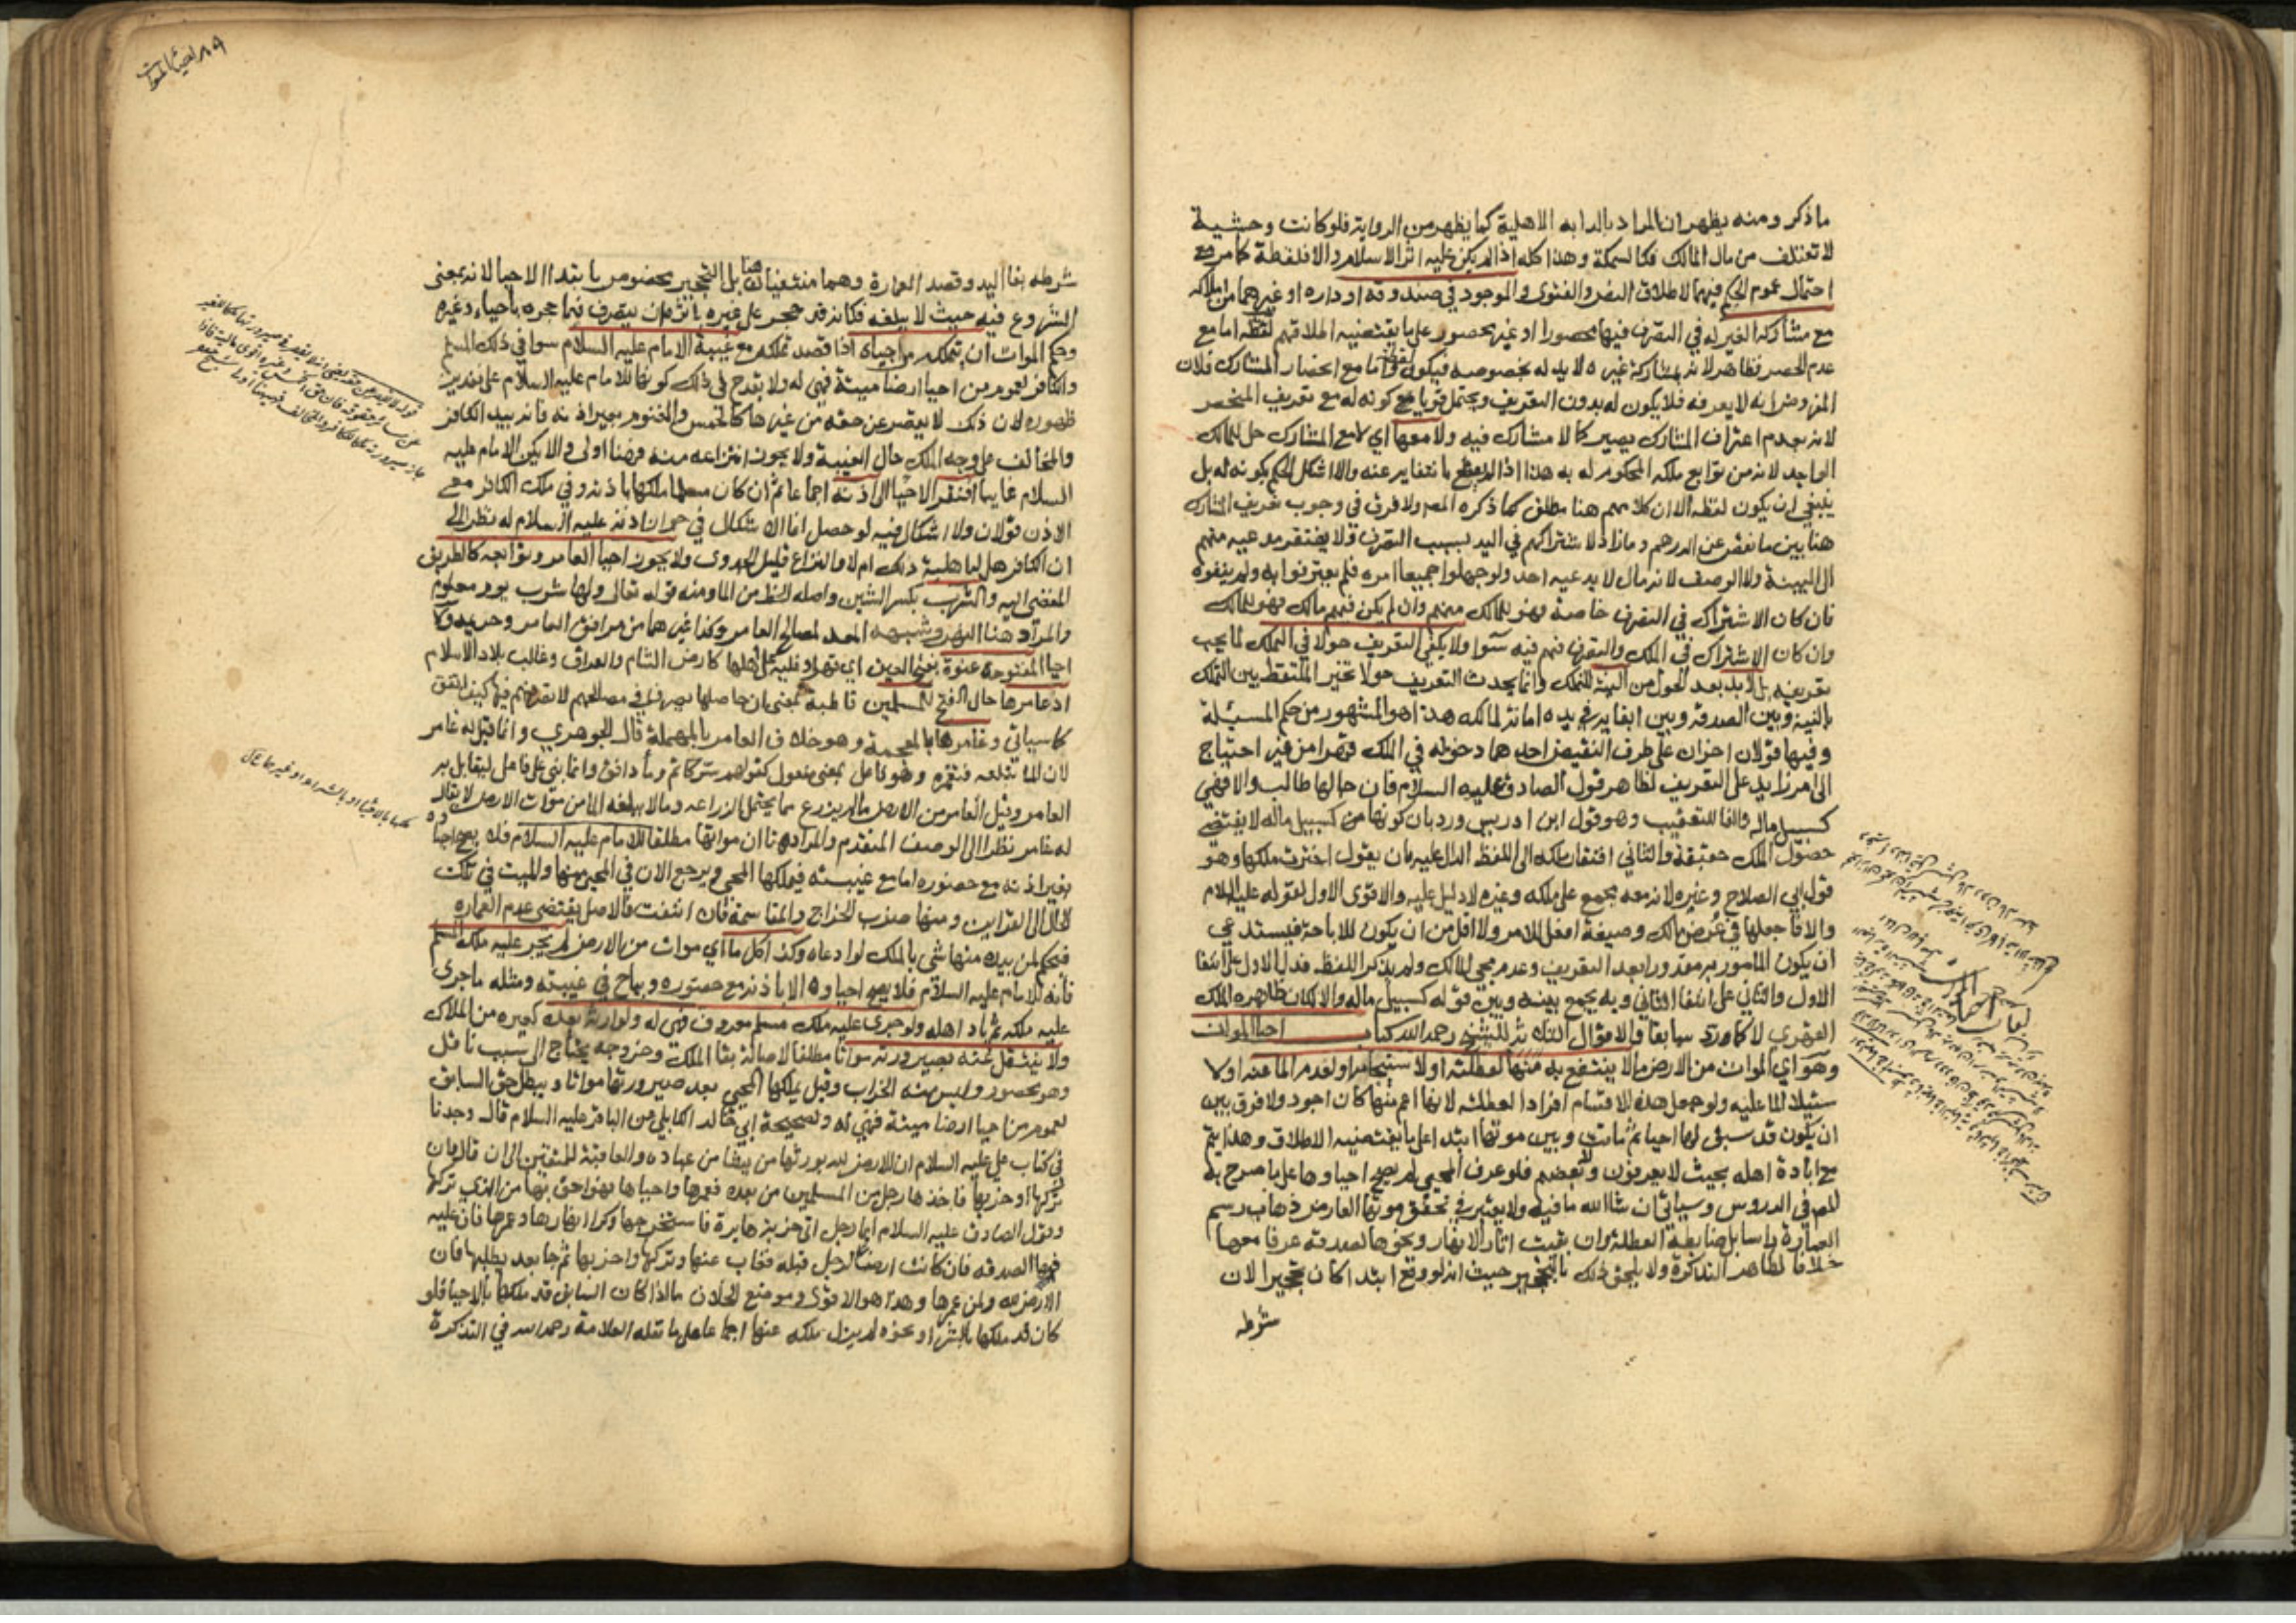 ما ذكر ومنه يظهر ان المراد بالدابه الاهلية كما يظهر من الرواية فلو كانت وحشية
لا تعتلف من مال المالك فكالسمكة وهذا كله اذا لم يكن عليه اثر الاسلام والا فلقطة كما مر مع
احتمال عموم الحكم فيهما لاطلاق النص والفتوى والموجود في صندوقه او داره او غيرهما من املاكه
مع مشاركة الغير له في التصرف فيها محصورا او غير محصور على ما يقتضيه اطلاقهم لقطه اما مع
عدم الحصر فظاهر لانه بمشاركة غيره لا يد له بخصوصه فيكون لقطة واما مع انحصار المشارك فلان
المفروض انه لا يعرفه فلا يكون له بدون التعريف ويحتمل قويا مع كونه له مع تعريف المنحصر
لانه بعدم اعتراف المشارك يصير كما لا مشارك فيه ولا معها اي لا مع المشارك حل للمالك
الواجد لانه من توابع ملكه المحكوم له به هذا اذا لم يقطع بانتفائه عنه والا اشكل الحكم بكونه له بل
ينبغي ان يكون لقطه الا ان كلامهم هنا مطلق كما ذكره المص ولا فرق في وجوب تعريف المشارك
هنا بين ما نقص عن الدرهم وما زاد لاشتراكهم في اليد بسبب التصرف ولا يفتقر مدعيه منهم
الى البينة ولا الوصف لانه مال لا يدعيه احد ولو جهلوا جميعا امره فلم يعترفوا به ولم ينفوه
فان كان الاشتراك في التصرف خاصة فهو للمالك منهم وان لم يكن فيهم مالك فهو للمالك
وان كان الاشتراك في الملك والتصرف فهم فيه سوا ولا يكفي التعريف حولا في التملك لما يجب
تعريفه بل لا بد بعد الحول من النية للتملك وانما يحدث التعريف حولا تخير الملتقط بين التملك
بالنية وبين الصدقة وبين ابقايه في يده امانة لمالكه هذا هو المشهور من حكم المسئلة
وفيها قولان اخران على طرف النقيض احدهما دخوله في الملك قهرا من غير احتياج
الى امر زايد على التعريف لظاهر قول الصادق عليه السلام فان جا لها طالب والا فهي
كسبيل ماله والفا للتعقيب وهو قول ابن ادريس ورد بان كونها من كسبيل ماله لا يقتضي
حصول الملك حقيقة والثاني افتقار ملكه الى اللفظ الدال عليه بان يقول اخترت ملكها وهو
قول ابي الصلاح وغيره لانه معه مجمع على ملكه وغيره لا دليل عليه والاقوى الاول لقوله عليه السلام
والا فاجعلها في عرض مالك وصيغة افعل للامر ولا اقل من ان يكون للاباحة فيستدعي
ان يكون المأمور به مقدورا بعد التعريف وعدم مجي المالك ولم يذكر اللفظ فدل الاول على انتفا
الاول والثاني على انتفا الثاني وبه يجمع بينه وبين قوله كسبيل ماله والا لكان ظاهره الملك
القهري لا كما ورد سابقا والاقوال الثلاثة للشيخ رحمه الله كتاب احيا الموات
وهو اي الموات من الارض ما لا ينتفع به منها لعطلته او لاستيجامه او لعدم الماء عنه او لا
ستيلا الما عليه ولو جعل هذه الاقسام افرادا لعطلته لانها اعم منها كان اجود ولا فرق بين
ان يكون قد سبق لها احيا ثم ماتت وبين موتها ابتدا على ما يقتضيه الاطلاق وهذا يتم
مع ابادة اهله بحيث لا يعرفون ولا بعضهم فلو عرف المحيي لم يصح احياوها على ما صرح به
المص في الدروس وسياتي ان شا الله ما فيه ولا يعتبر في تحقق موتها العارض ذهاب رسم
العمارة راسا بل ضابطه العطلة وان بقيت اثار الانهار ونحوها لصدقه عرفا معها
خلافا لظاهر التذكرة ولا يلحق ذلك بالتحجير حيث انه لو وقع ابتدا كان تحجيرا لان
شرطه
احيا الموات
شرطه بقا اليد وقصد العمارة وهما منتفيان هنا بل التحجير مخصوص بابتدا الاحيا لانه بمعنى
الشروع فيه حيث لا يبلغه فكانه قد حجر على غيره باثره ان يتصرف فيما حجره باحياء وغيره
وحكم الموات ان يتملكه من احياه اذا قصد تملكه مع غيبة الامام عليه السلام سوا في ذلك المسلم
والكافر لعموم من احيا ارضا ميتة فهي له ولا يقدح في ذلك كونها للامام عليه السلام على تقدير
ظهوره لان ذلك لا يقصر عن حقه من غيرها كالخمس والمغنوم بغير اذنه فانه بيد الكافر
والمخالف على وجه الملك حال الغيبة ولا يجوز انتزاعه منه فهنا اولى والا يكن الامام عليه
السلام غايبا افتقر الاحيا الى اذنه اجماعا ثم ان كان مسلما ملكها باذنه وفي ملك الكافر مع
الاذن قولان ولا اشكال فيه لو حصل انما الاشكال في جواز اذنه عليه السلام له نظرا الى
ان الكافر هل له اهلية ذلك ام لا والنزاع قليل الجدوى ولا يجوز احيا العامر وتوابعه كالطريق
المفضي اليه والشرب بكسر الشين واصله الحظ من الما ومنه قوله تعالى ولها شرب يوم معلوم
والمراد هنا النهر وشبهه المعد لمصالح العامر وكذا غيرهما من مرافق العامر وحريمه ولا
احيا المفتوحة عنوة بفتح العين اي قهرا وغلبة على اهلها كارض الشام والعراق وغالب بلاد الاسلام
اذ عامرها حال الفتح للمسلمين قاطبة بمعنى ان حاصلها يصرف في مصالحهم لا تصرفهم فيها كيف اتفق
كما سياتي وغامرها بالمعجمة وهو خلاف العامر بالمهملة قال الجوهري وانما قيل له غامر
لان الما يبلغه فيغمره وهو فاعل بمعنى مفعول كقولهم سر كاتم وماء دافق وانما بني على فاعل ليقابل به
العامر وقيل الغامر من الارض ما لم يزرع مما يحتمل الزراعه وما لا يبلغه الما من موات الارض لا يقال
له غامر نظرا الى الوصف المتقدم والمراد هنا ان مواتها مطلقا للامام عليه السلام فلا يصح احياوه
بغير اذنه مع حضوره اما مع غيبته فيملكها المحيي ويرجع الان في المحيى منها والميت في تلك
الحال الى القراين ومنها ضرب الخراج والمقاسمة فان انتفت فالاصل يقتضي عدم العماره
فيحكم لمن بيده منها شي بالملك لو ادعاه وكذا كل ما اي موات من الارض لم يجر عليه ملك المسلم
فانه للامام عليه السلام فلا يصح احياوه الا باذنه مع حضوره ويباح في غيبته ومثله ما جرى
عليه ملكه ثم باد اهله ولو جرى عليه ملك مسلم معروف فهي له ولوارثه بعده كغيره من الاملاك
ولا ينتقل عنه بصيرورته مواتا مطلقا لاصالة بقا الملك وخروجه يحتاج الى سبب ناقل
وهو محصور وليس منه الخراب وقيل يملكها المحيي بعد صيرورتها مواتا ويبطل حق السابق
لعموم من احيا ارضا ميتة فهي له ولصحيحة ابي خالد الكابلي عن الباقر عليه السلام قال وجدنا
في كتاب علي عليه السلام ان الارض لله يورثها من يشا من عباده والعاقبة للمتقين الى ان قال فان
تركها او خربها فاخذها رجل من المسلمين من بعده فعمرها واحياها فهو احق بها من الذي تركها
وقول الصادق عليه السلام ايما رجل اتى خربة بايرة فاستخرجها وكرى انهارها وعمرها فان عليه
فيها الصدقه فان كانت ارضا لرجل قبله فغاب عنها وتركها واخربها ثم جا بعد يطلبها فان
الارض لله ولمن عمرها وهذا هو الاقوى وموضع الخلاف ما اذا كان السابق قد ملكها بالاحيا فلو
كان قد ملكها بالشرا ونحوه لم يزل ملكه عنها اجماعا على ما نقله العلامة رحمه الله في التذكرة